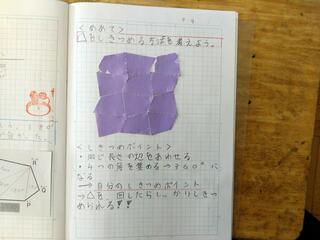 <めあて>
をしきつめる方法を考えよう。
<しきつめポイント>
・同じ長さの辺をあわせる
・4つの角を集める→360°に
なる
→自分のしきつめポイント
→を回したらしっかりしきつ
められる!!